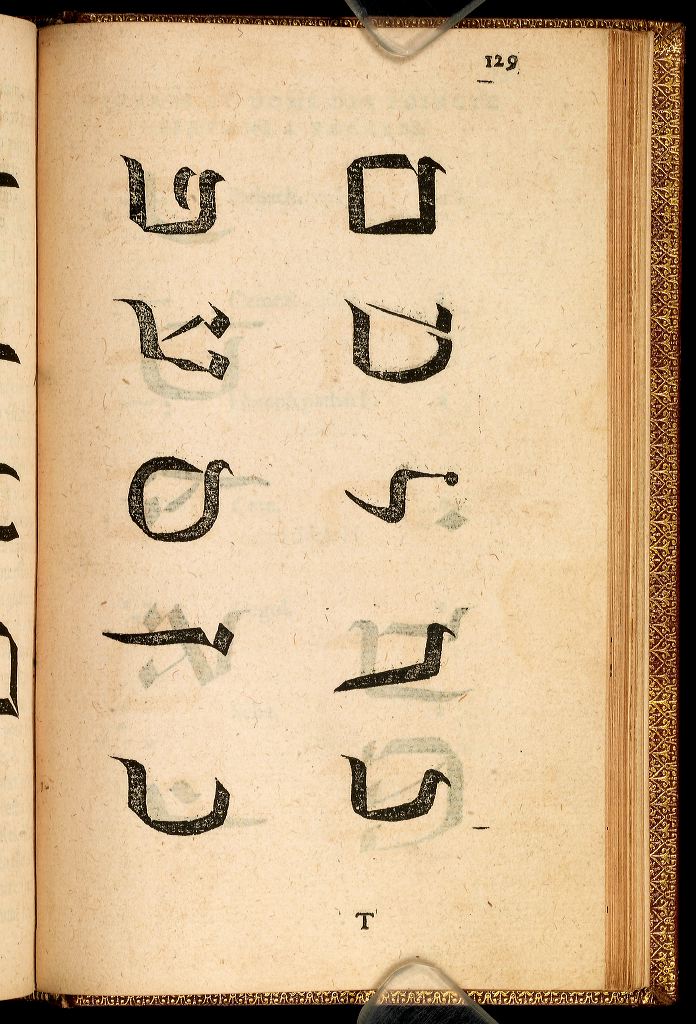 129
כ ך ל מ ם
נ ן ס ע פ
T